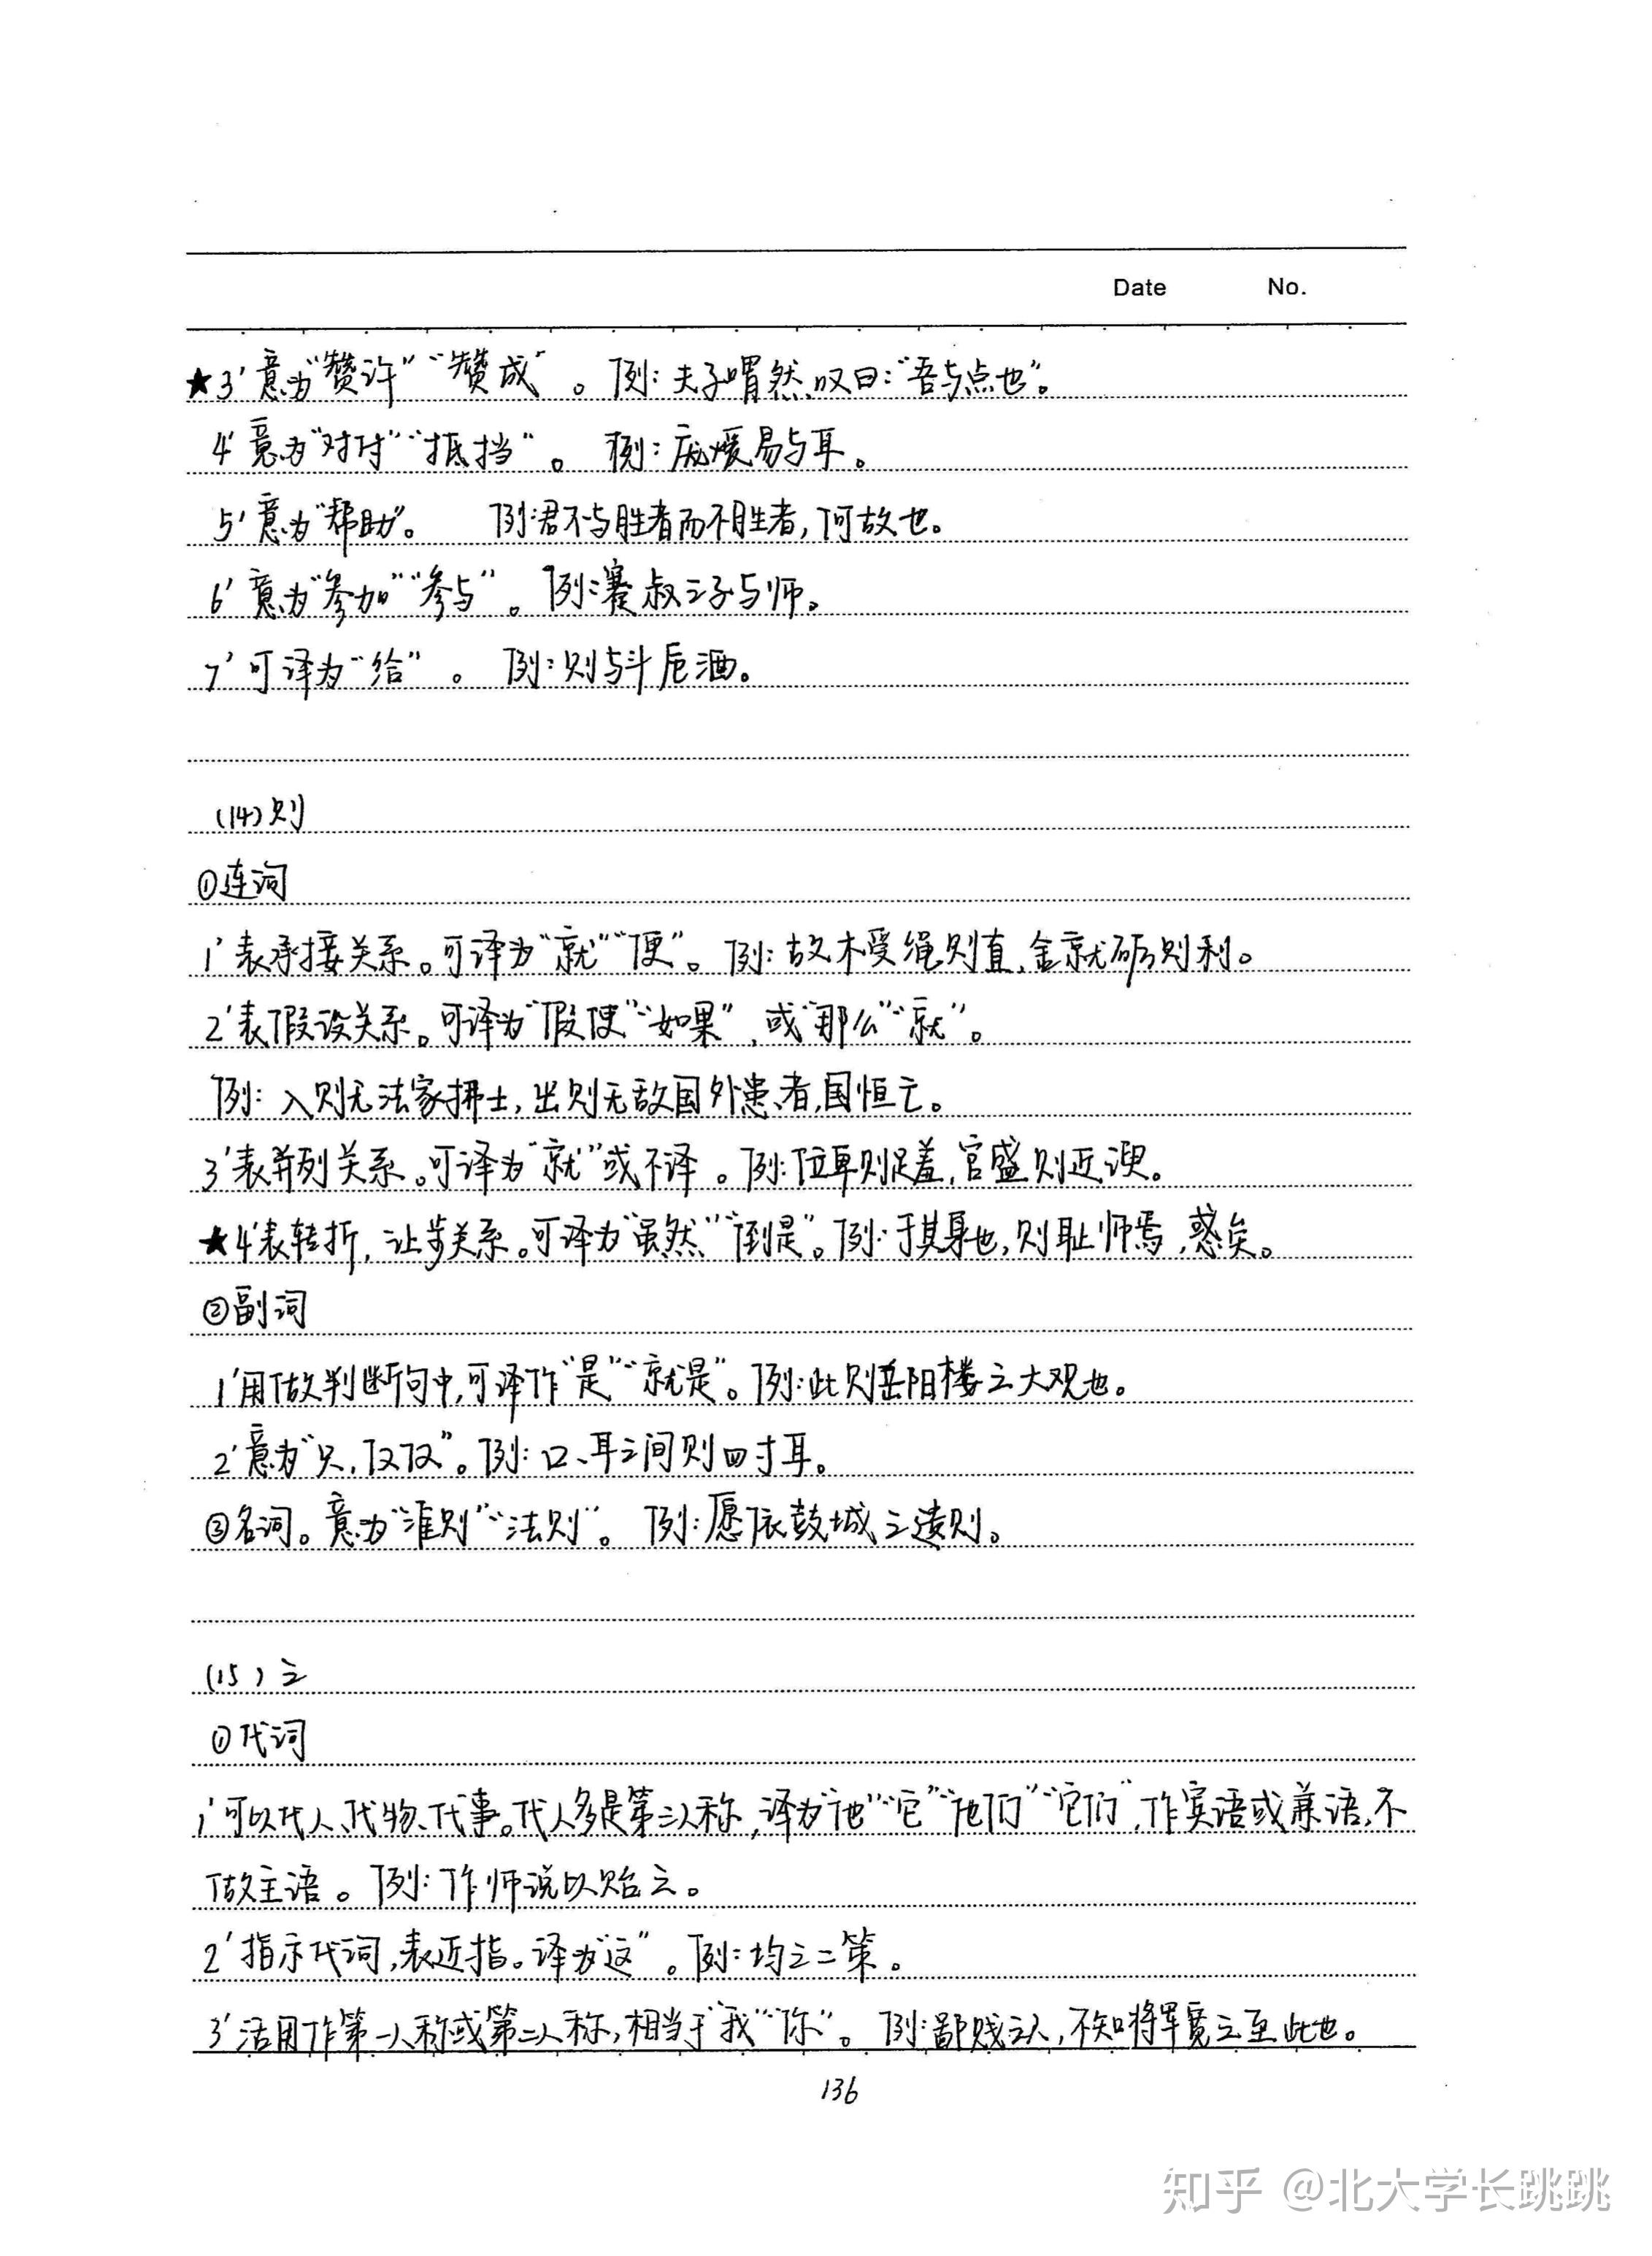 Date No.
★3'意为“赞许”“赞成”。例：夫子喟然叹曰：“吾与点也”。
4'意为“对付”“抵挡”。例：庞煖易与耳。
5'意为“帮助”。例：君不与胜者而不胜者，何故也。
6'意为“参加”“参与”。例：蹇叔之子与师。
7'可译为“给”。例：则与斗卮酒。
(14)则
①连词
1'表承接关系。可译为“就”“便”。例：故木受绳则直，金就砺则利。
2'表假设关系。可译为“假使”“如果”，或“那么”“就”。
例：入则无法家拂士，出则无敌国外患者，国恒亡。
3'表并列关系。可译为“就”或不译。例：位卑则足羞，官盛则近谀。
★4'表转折，让步关系。可译为“虽然”“倒是”。例：于其身也，则耻师焉，惑矣。
②副词
1'用做判断句中，可译作“是”“就是”。例：此则岳阳楼之大观也。
2'意为“只，仅仅”。例：口、耳之间则四寸耳。
③名词。意为“准则”“法则”。例：愿依鼓城之遗则。
(15)之
①代词
1'可以代人、代物、代事。代人多是第三人称，译为“他”“它”“他们”“它们”，作宾语或兼语，不
做主语。例：作师说以贻之。
2'指示代词，表近指。译为“这”。例：均之二策。
3'活用作第一人称或第二人称，相当于“我”“你”。例：鄙贱之人，不知将军宽之至此也。
136
知乎 @北大学长跳跳